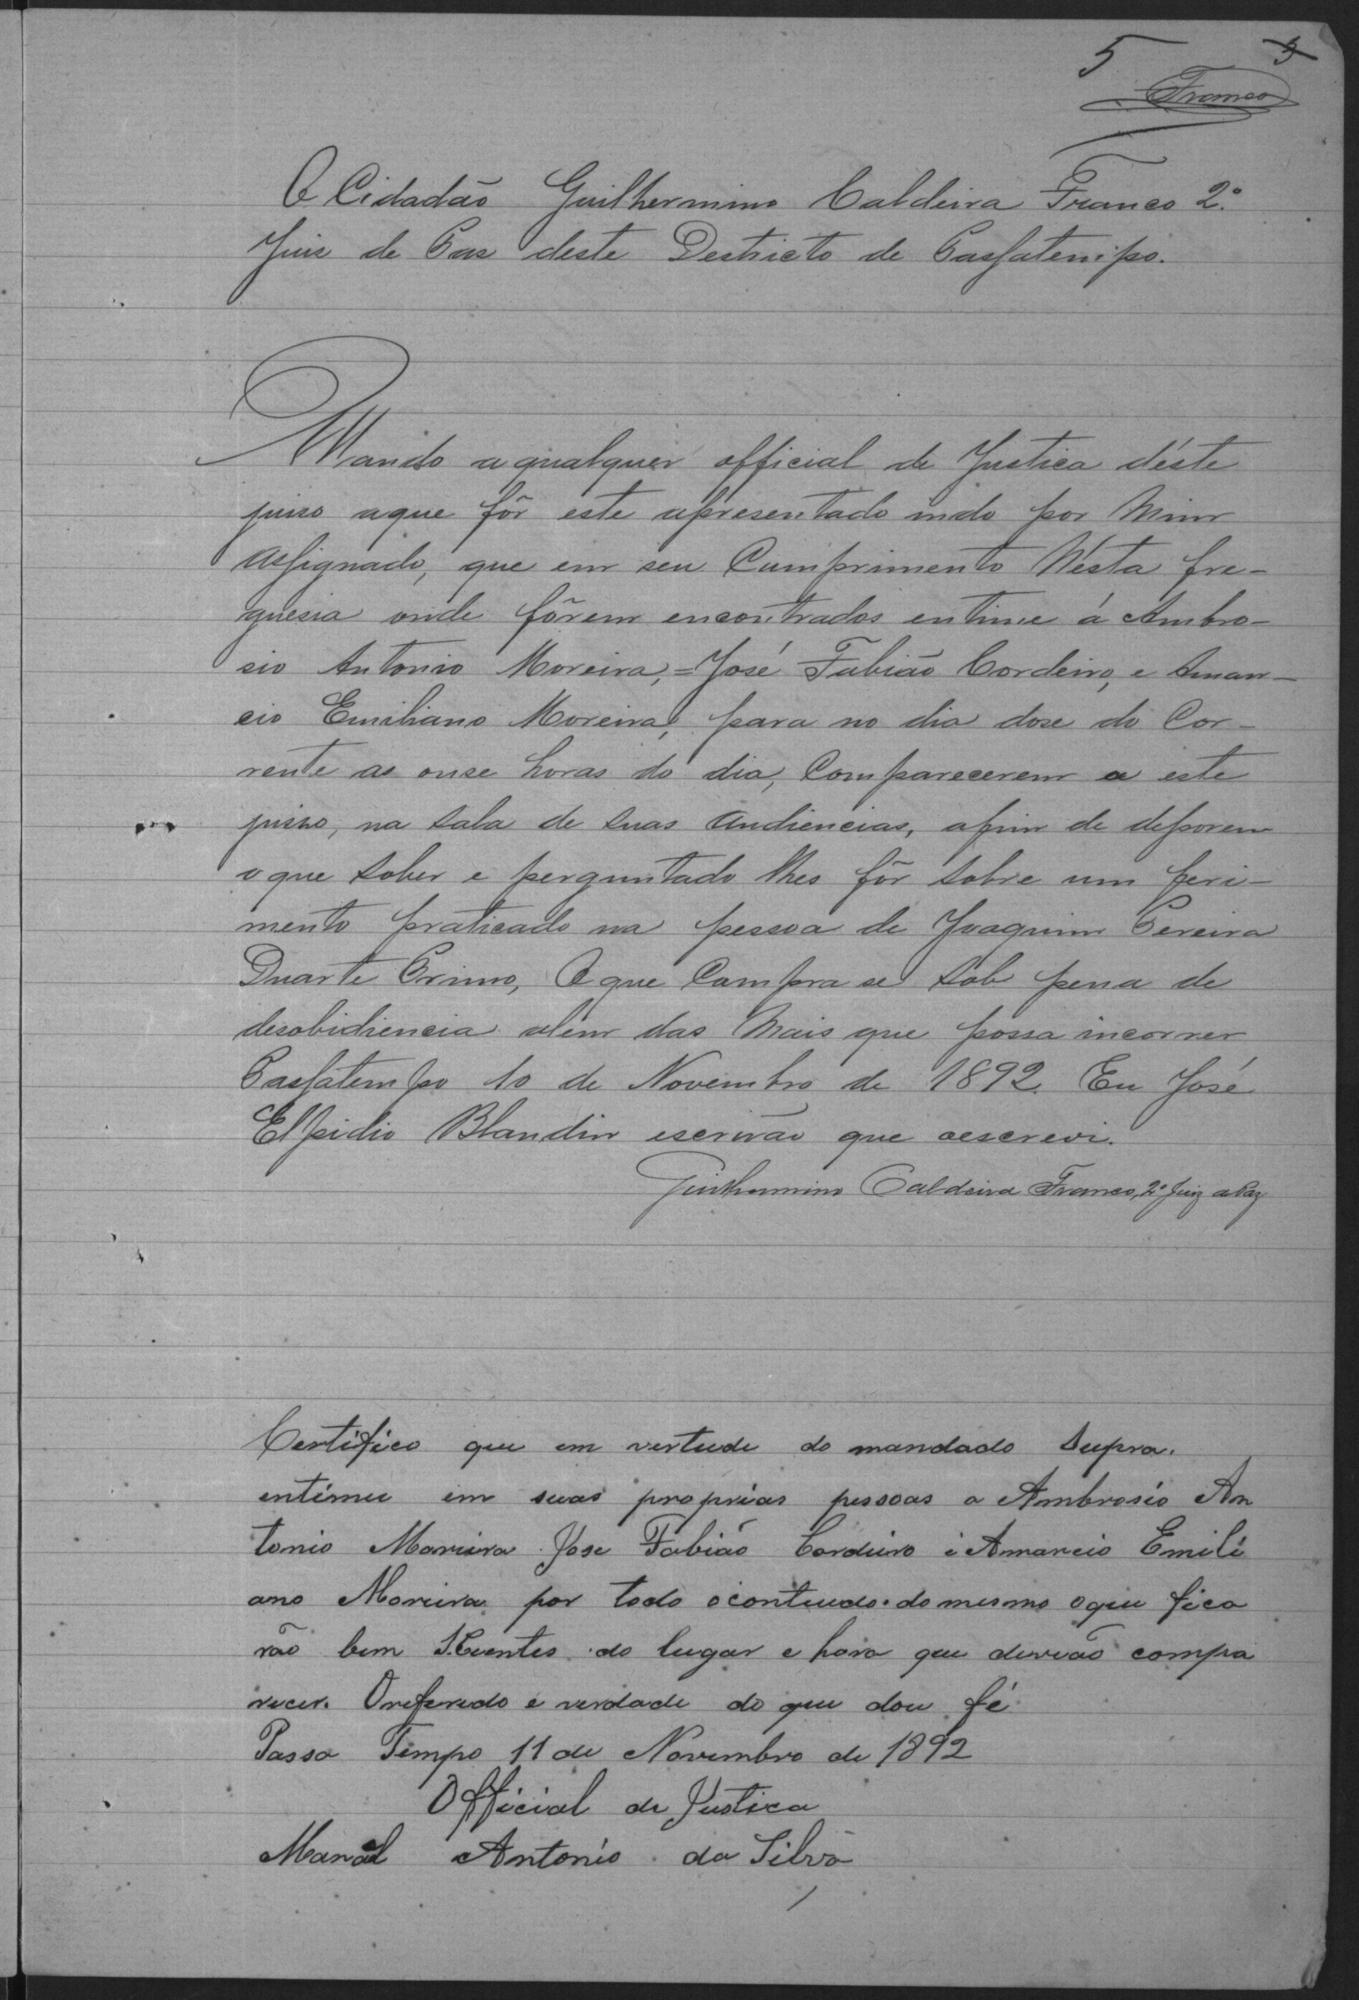 5 3
Franco
O Cidadão Guilhermino Caldeira Franco 2º
Juis de Pas deste Destricto de Passatempo.
Mando a qualquer official de Justica déste
juiso aque fôr este apresentado indo por Mim
assignado, que em seu Cumprimento Nésta fre-
guesia onde fôrem encontrados entime á Ambro-
sio Antonio Moreira,=José Fabião Cordeiro, e Aman-
cio Emiliano Moreira, para no dia dose do Cor-
rente as onse horas do dia, Comparecerem a este
juiso, na Sala de Suas Audiencias, afim de deporem
o que Saber e perguntado lhes fôr Sobre um feri-
mento praticado na pessoa de Joaquim Pereira
Duarte Primo, O que Cumpra se Sob pena de
desobidiencia alem das Mais que possa incorrer
Passatempo 10 de Novembro de 1892. Eu José
Elpidio Blandin escrivão que oescrevi.
Guilhermino Caldeira Franco, 2º Juiz de Paz
Certifico que em vertude do mandado Supra.
entimei em suas proprias pessoas a Ambrosio An
tonio Moreira Jose Fabião Cordeiro e Amancio Emili
ano Moreira por todo oconteudo do mesmo oque fica
rão bem Scientes do lugar e hora que deverão compa
recer. Oreferido é verdade do que dou fé
Passa Tempo 11 de Novembro de 1892
Official de Justica
Manoel Antonio da Silva